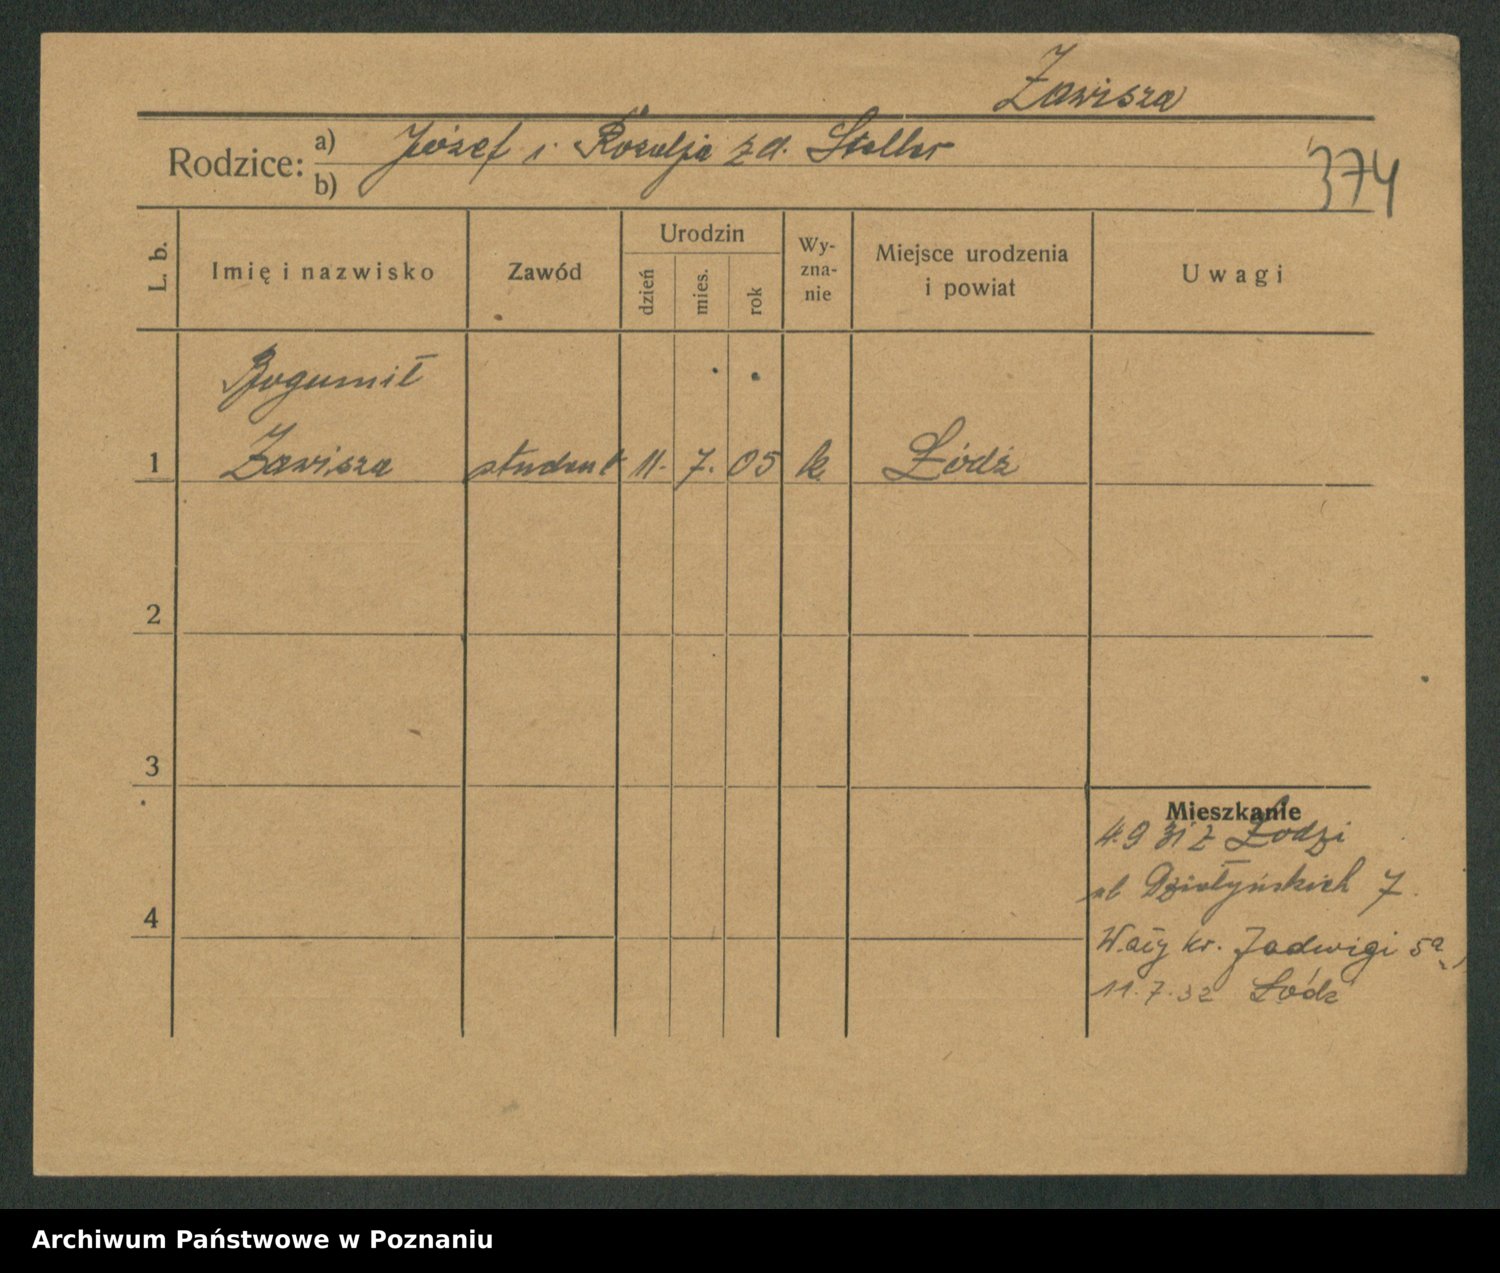 Zawisza
Rodzice: a) Józef i Rozalja z d. Steller
b)
374
L. b. Imię i nazwisko Zawód Urodzin dzień mies. rok Wy-zna-nie Miejsce urodzenia i powiat Uwagi
Bogumił
1 Zawisza student 11. 7. 05 k Łódź
2
3
Mieszkanie
4.9 31 z Łodzi
ul Działyńskich 7.
4
Wały kr. Jadwigi 5a,
11.7.32 Łódź
Archiwum Państwowe w Poznaniu